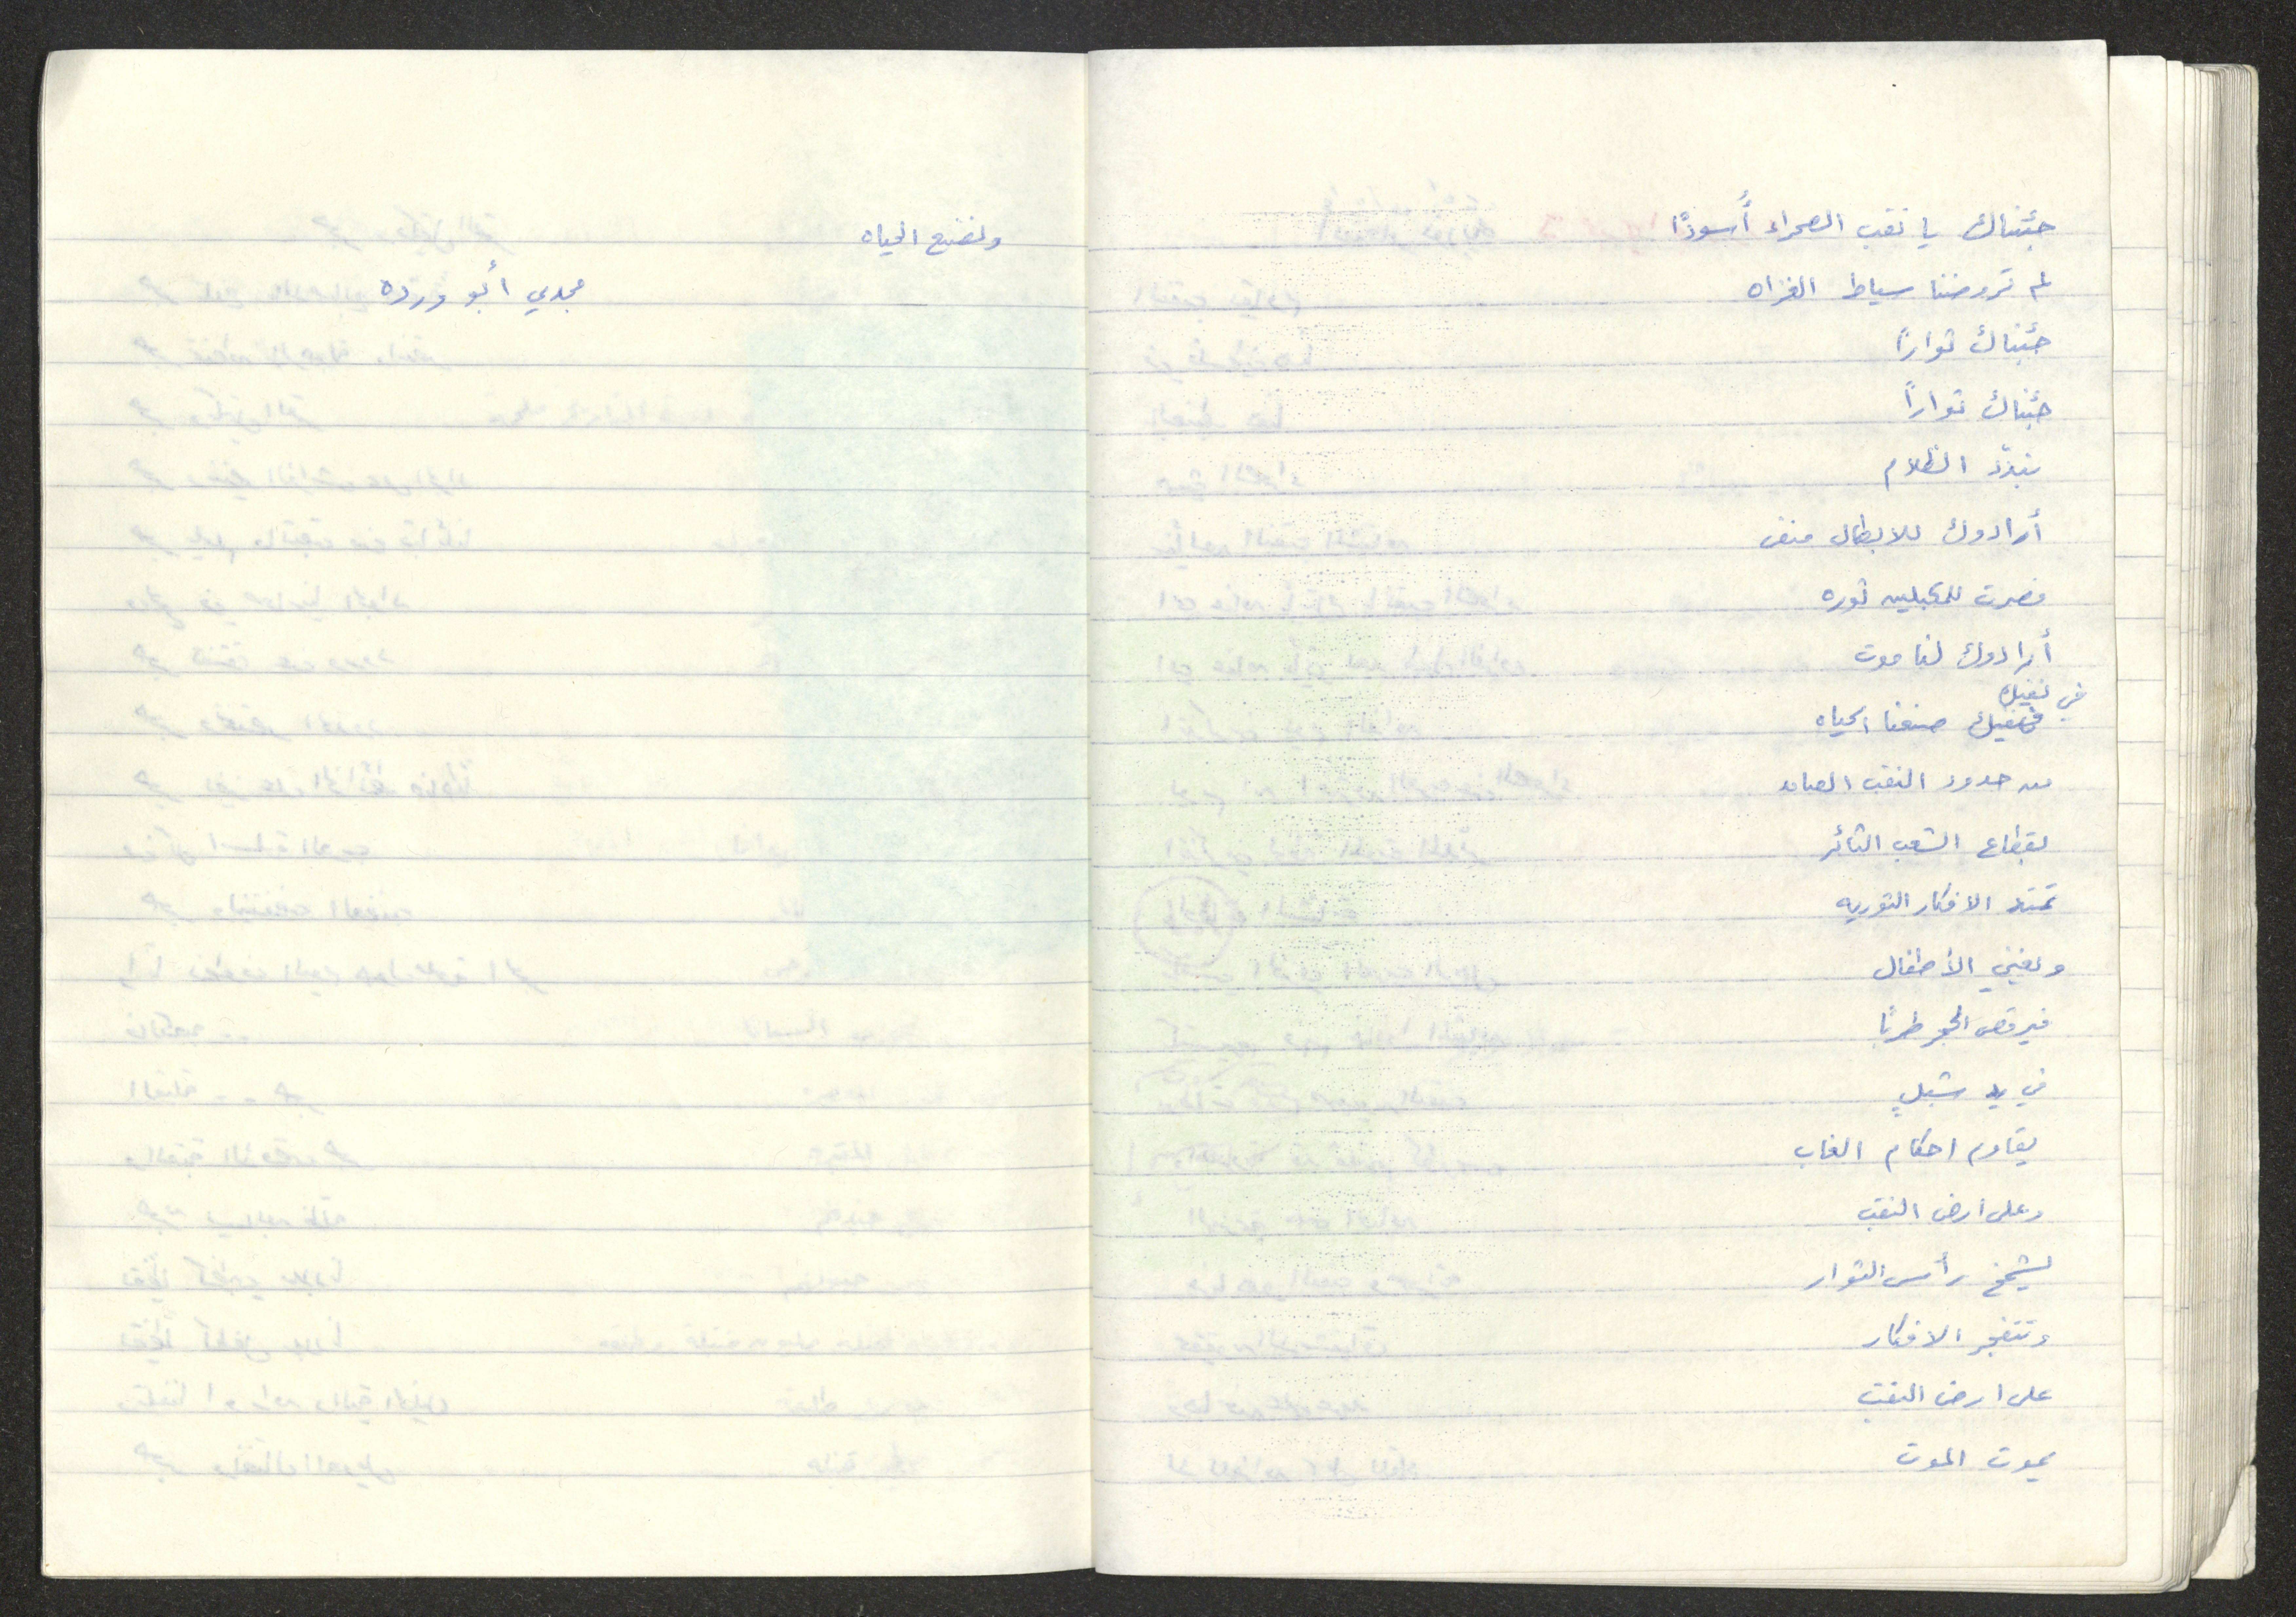 جئناك يا نقب الصحراء أسودًا
لم تروضنا سياط الغزاه
جئناك ثوارًا
جئناك ثوارًا
نبدّد الظلام
أرادوك للابطال منفى
فصرت للمكبلين ثوره
أرادوك لنا موت
في نفيك
صنعنا الحياه
من حدود النقب الصامد
لقطاع الشعب الثائر
تمتد الافكار الثوريه
ويغني الأطفال
فيرقص الحجر طربًا
في يد شبلٍ
يقاوم احكام الغاب
وعلى ارض النقب
يشمخ رأس الثوار
وتتفجر الافكار
على ارض النقب
يموت الموت
ونصنع الحياه
مجدي أبو ورده